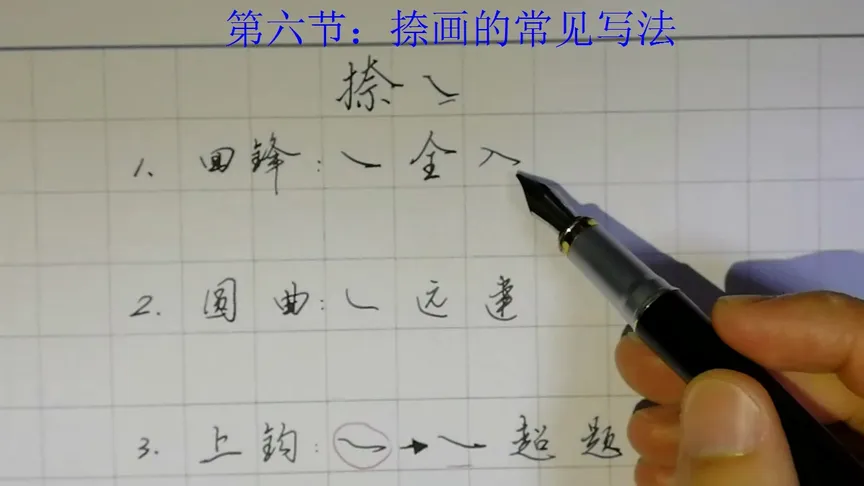 第六节：捺画的常见写法
捺
1. 回锋: 全入
2. 圆曲: 远建
3. 上钩: → 超题